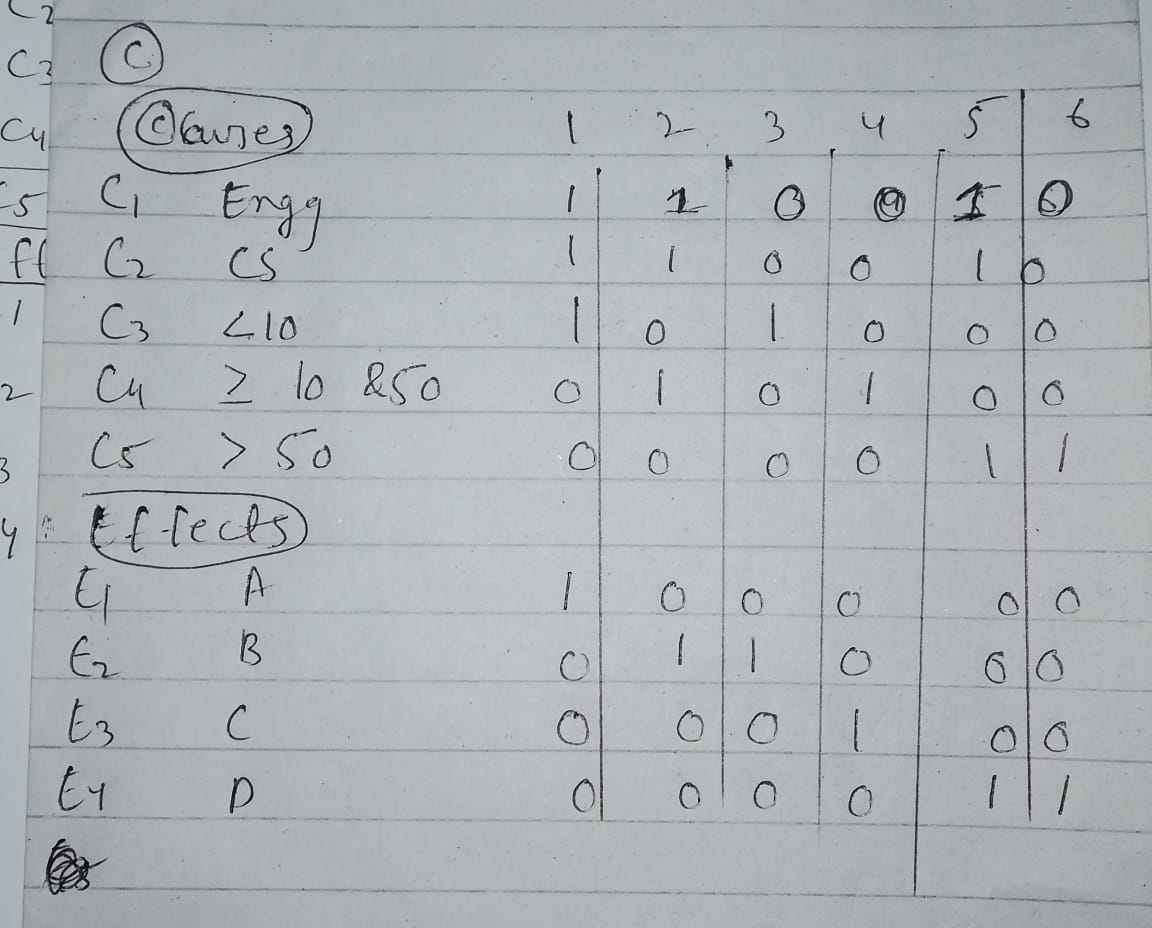 C2
C3 C
C4 Causes 1 2 3 4 5 6
C5 C1 Engg 1 1 0 0 1 0
C2 CS 1 1 0 0 1 0
1 C3 <10 1 0 1 0 0 0
2 C4 ≥ 10 &50 0 1 0 1 0 0
3 C5 > 50 0 0 0 0 1 1
4 Effects
E1 A 1 0 0 0 0 0
E2 B 0 1 1 0 0 0
E3 C 0 0 0 1 0 0
E4 D 0 0 0 0 1 1